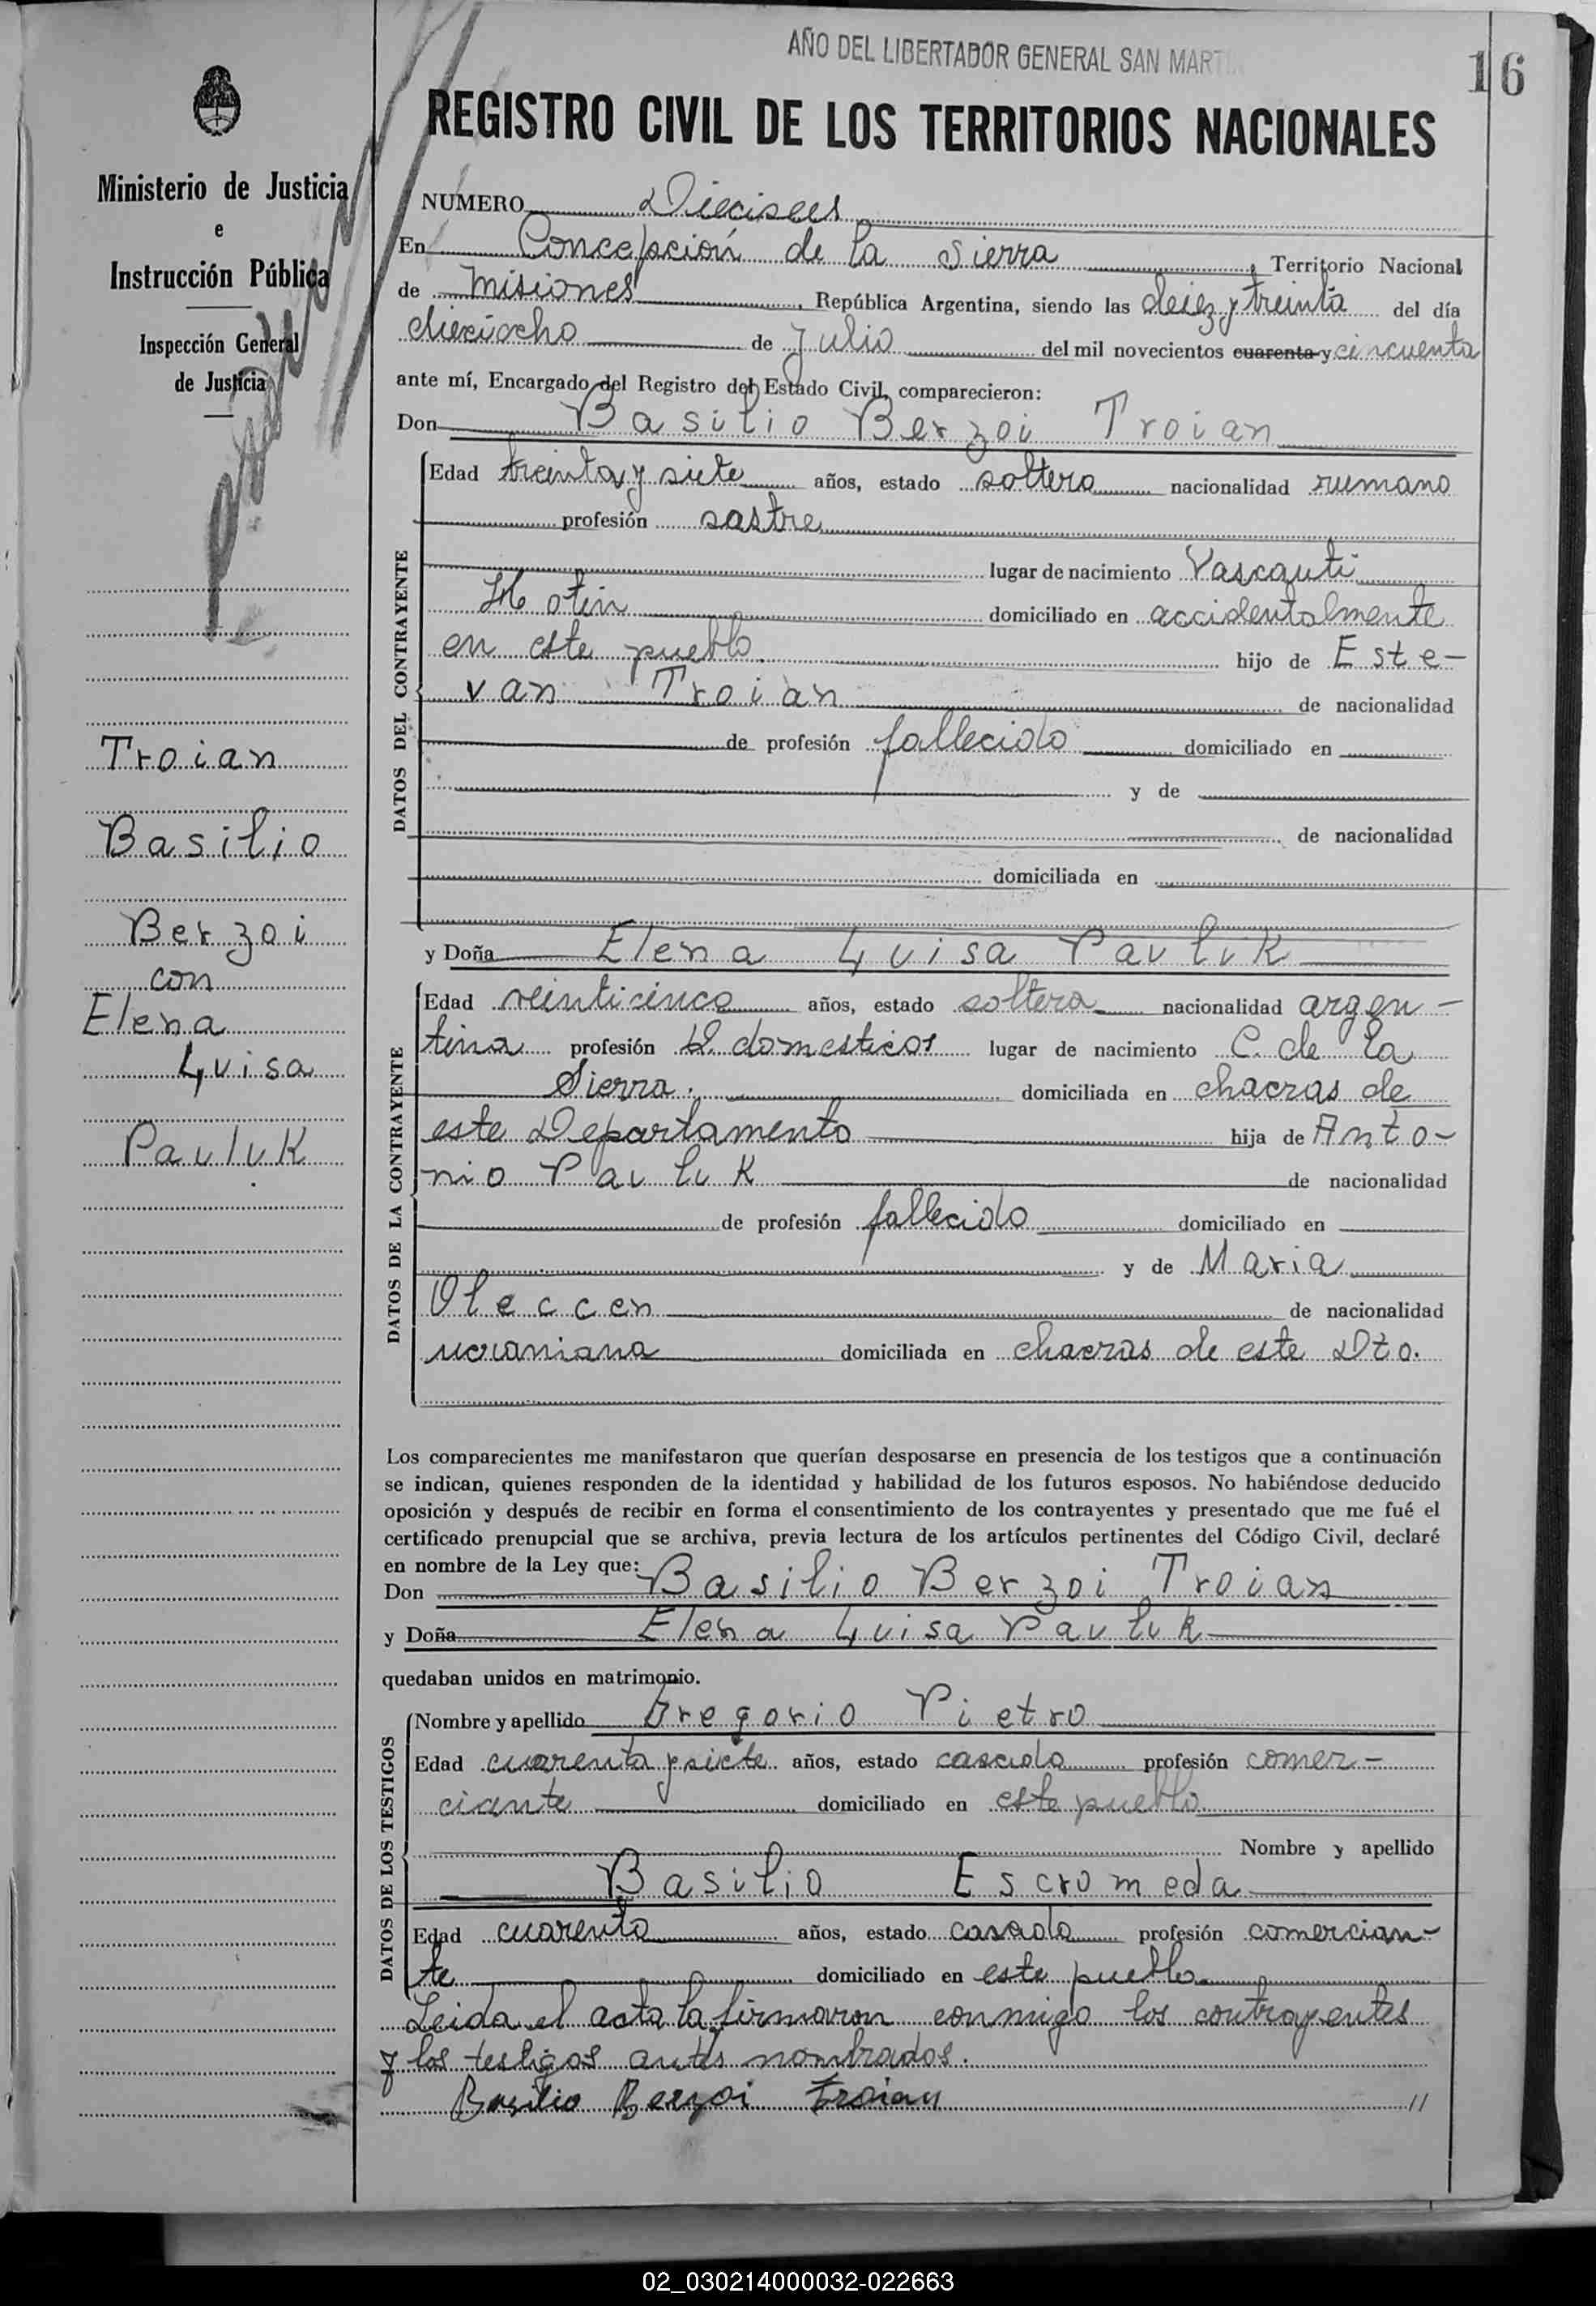 AÑO DEL LIBERTADOR GENERAL SAN MARTIN
16
REGISTRO CIVIL DE LOS TERRITORIOS NACIONALES
Ministerio de Justicia
e
Instrucción Pública
Inspección General
de Justicia
Troian
Basilio
Berzoi
con
Elena
Luisa
Pauluk
NUMERO Dieciseis
En Concepción de la Sierra, Territorio Nacional
de Misiones, República Argentina, siendo las deiez y treinta del día
dieciocho de Julio del mil novecientos cuarenta y cincuenta
ante mí, Encargado del Registro del Estado Civil, comparecieron:
Don Basilio Berzoi Troian
DATOS DEL CONTRAYENTE
Edad treinta y siete años, estado soltero nacionalidad rumano
profesión sastre
lugar de nacimiento Vascauti
Hotin domiciliado en accidentalmente
en este pueblo hijo de Este-
van Troian de nacionalidad
de profesión fallecido domiciliado en
y de
de nacionalidad
domiciliada en
y Doña Elena Luisa Pauluk
DATOS DE LA CONTRAYENTE
Edad veinticinco años, estado soltera nacionalidad argen-
tina profesión Q. domesticos lugar de nacimiento C. de la
Sierra. domiciliada en chacras de
este Departamento hija de Anto-
nio Pauluk de nacionalidad
de profesión fallecido domiciliado en
y de Maria
Oleccen de nacionalidad
ucraniana domiciliada en chacras de este Dto.
Los comparecientes me manifestaron que querían desposarse en presencia de los testigos que a continuación
se indican, quienes responden de la identidad y habilidad de los futuros esposos. No habiéndose deducido
oposición y después de recibir en forma el consentimiento de los contrayentes y presentado que me fué el
certificado prenupcial que se archiva, previa lectura de los artículos pertinentes del Código Civil, declaré
en nombre de la Ley que:
Don Basilio Berzoi Troian
y Doña Elena Luisa Pauluk
quedaban unidos en matrimonio.
DATOS DE LOS TESTIGOS
Nombre y apellido Gregorio Pietro
Edad cuarenta y siete años, estado casado profesión comer-
ciante domiciliado en este pueblo
Nombre y apellido
Basilio Escromeda
Edad cuarenta años, estado casado profesión comercian-
te domiciliado en este pueblo
Leida el acta la firmaron conmigo los contrayentes
y los testigos antes nombrados.
Basilio Berzoi Troian //
02_030214000032-022663